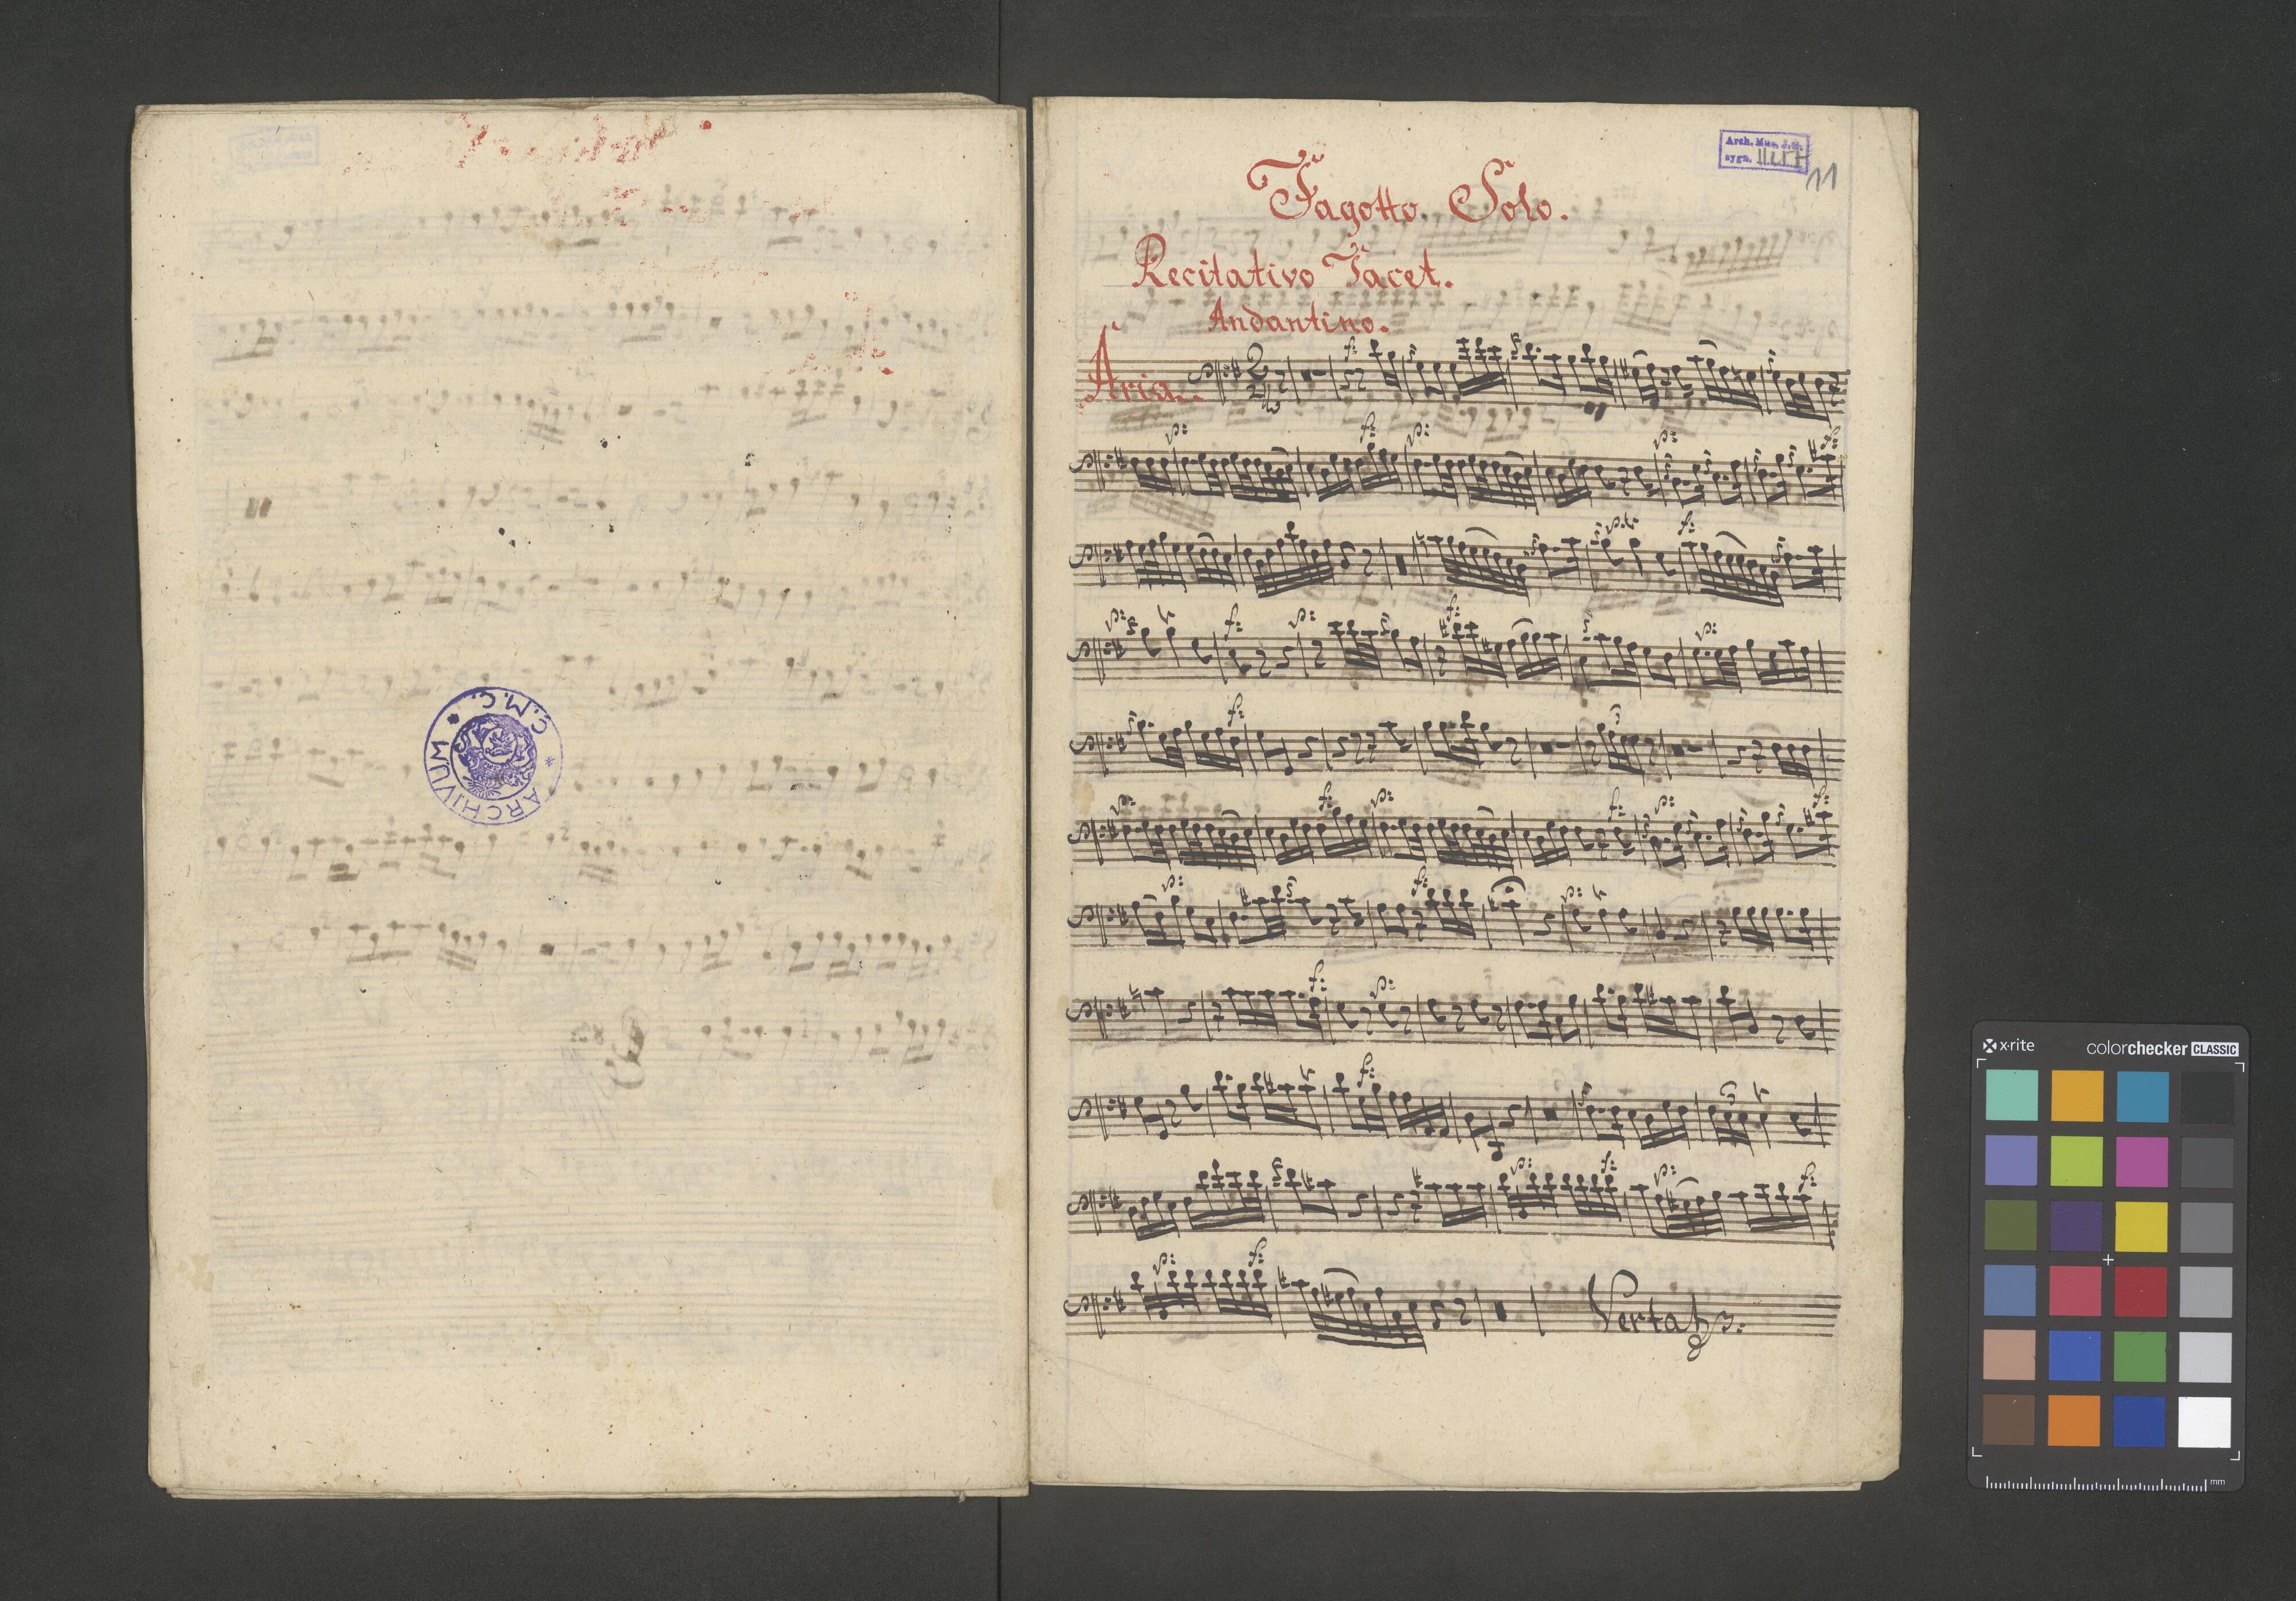 ARCHIVUM
C.M.C.
Arch. Mus.
sygn.
11
Fagotto Solo.
Recitativo Tacet.
Andantino.
Aria
f:
p:
f:
p:
p:
f:
f:
p:
f:
p:
f:
p:
f:
p:
f:
p:
f:
p:
f:
p:
f:
p:
f:
p:
f:
p:
f:
p:
f:
p:
f:
x-rite
colorchecker CLASSIC
mm